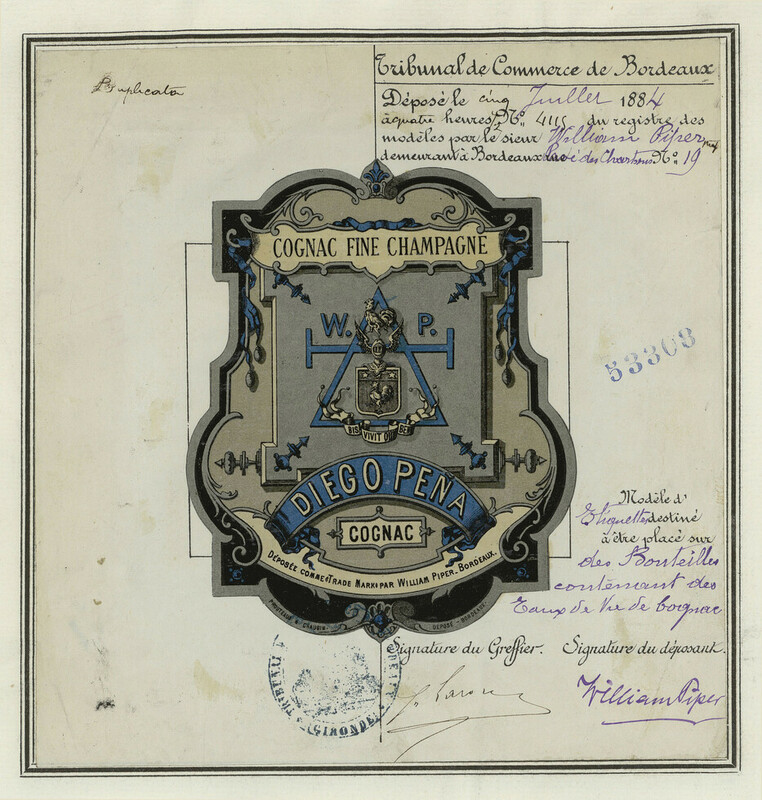 Duplicata
Tribunal de Commerce de Bordeaux
Déposé le cinq Juillet 1884
à quatre heures ½ N° 4115 du registre des
modèles par le sieur William Piper
demeurant à Bordeaux Pavé des Chartrons N° 19
COGNAC FINE CHAMPAGNE
W. P.
BIS VIVIT QUI BENE
DIEGO PEÑA
COGNAC
DÉPOSÉE COMME "TRADE MARK" PAR WILLIAM PIPER_BORDEAUX.
DÉPOSÉ - BORDEAUX
53303
Modèle d'
Etiquette destiné
à être placé sur
des Bouteilles
contenant des
Eaux de Vie de Cognac
Signature du Greffier. Signature du déposant.
William Piper
TRIBUNAL
GIRONDE